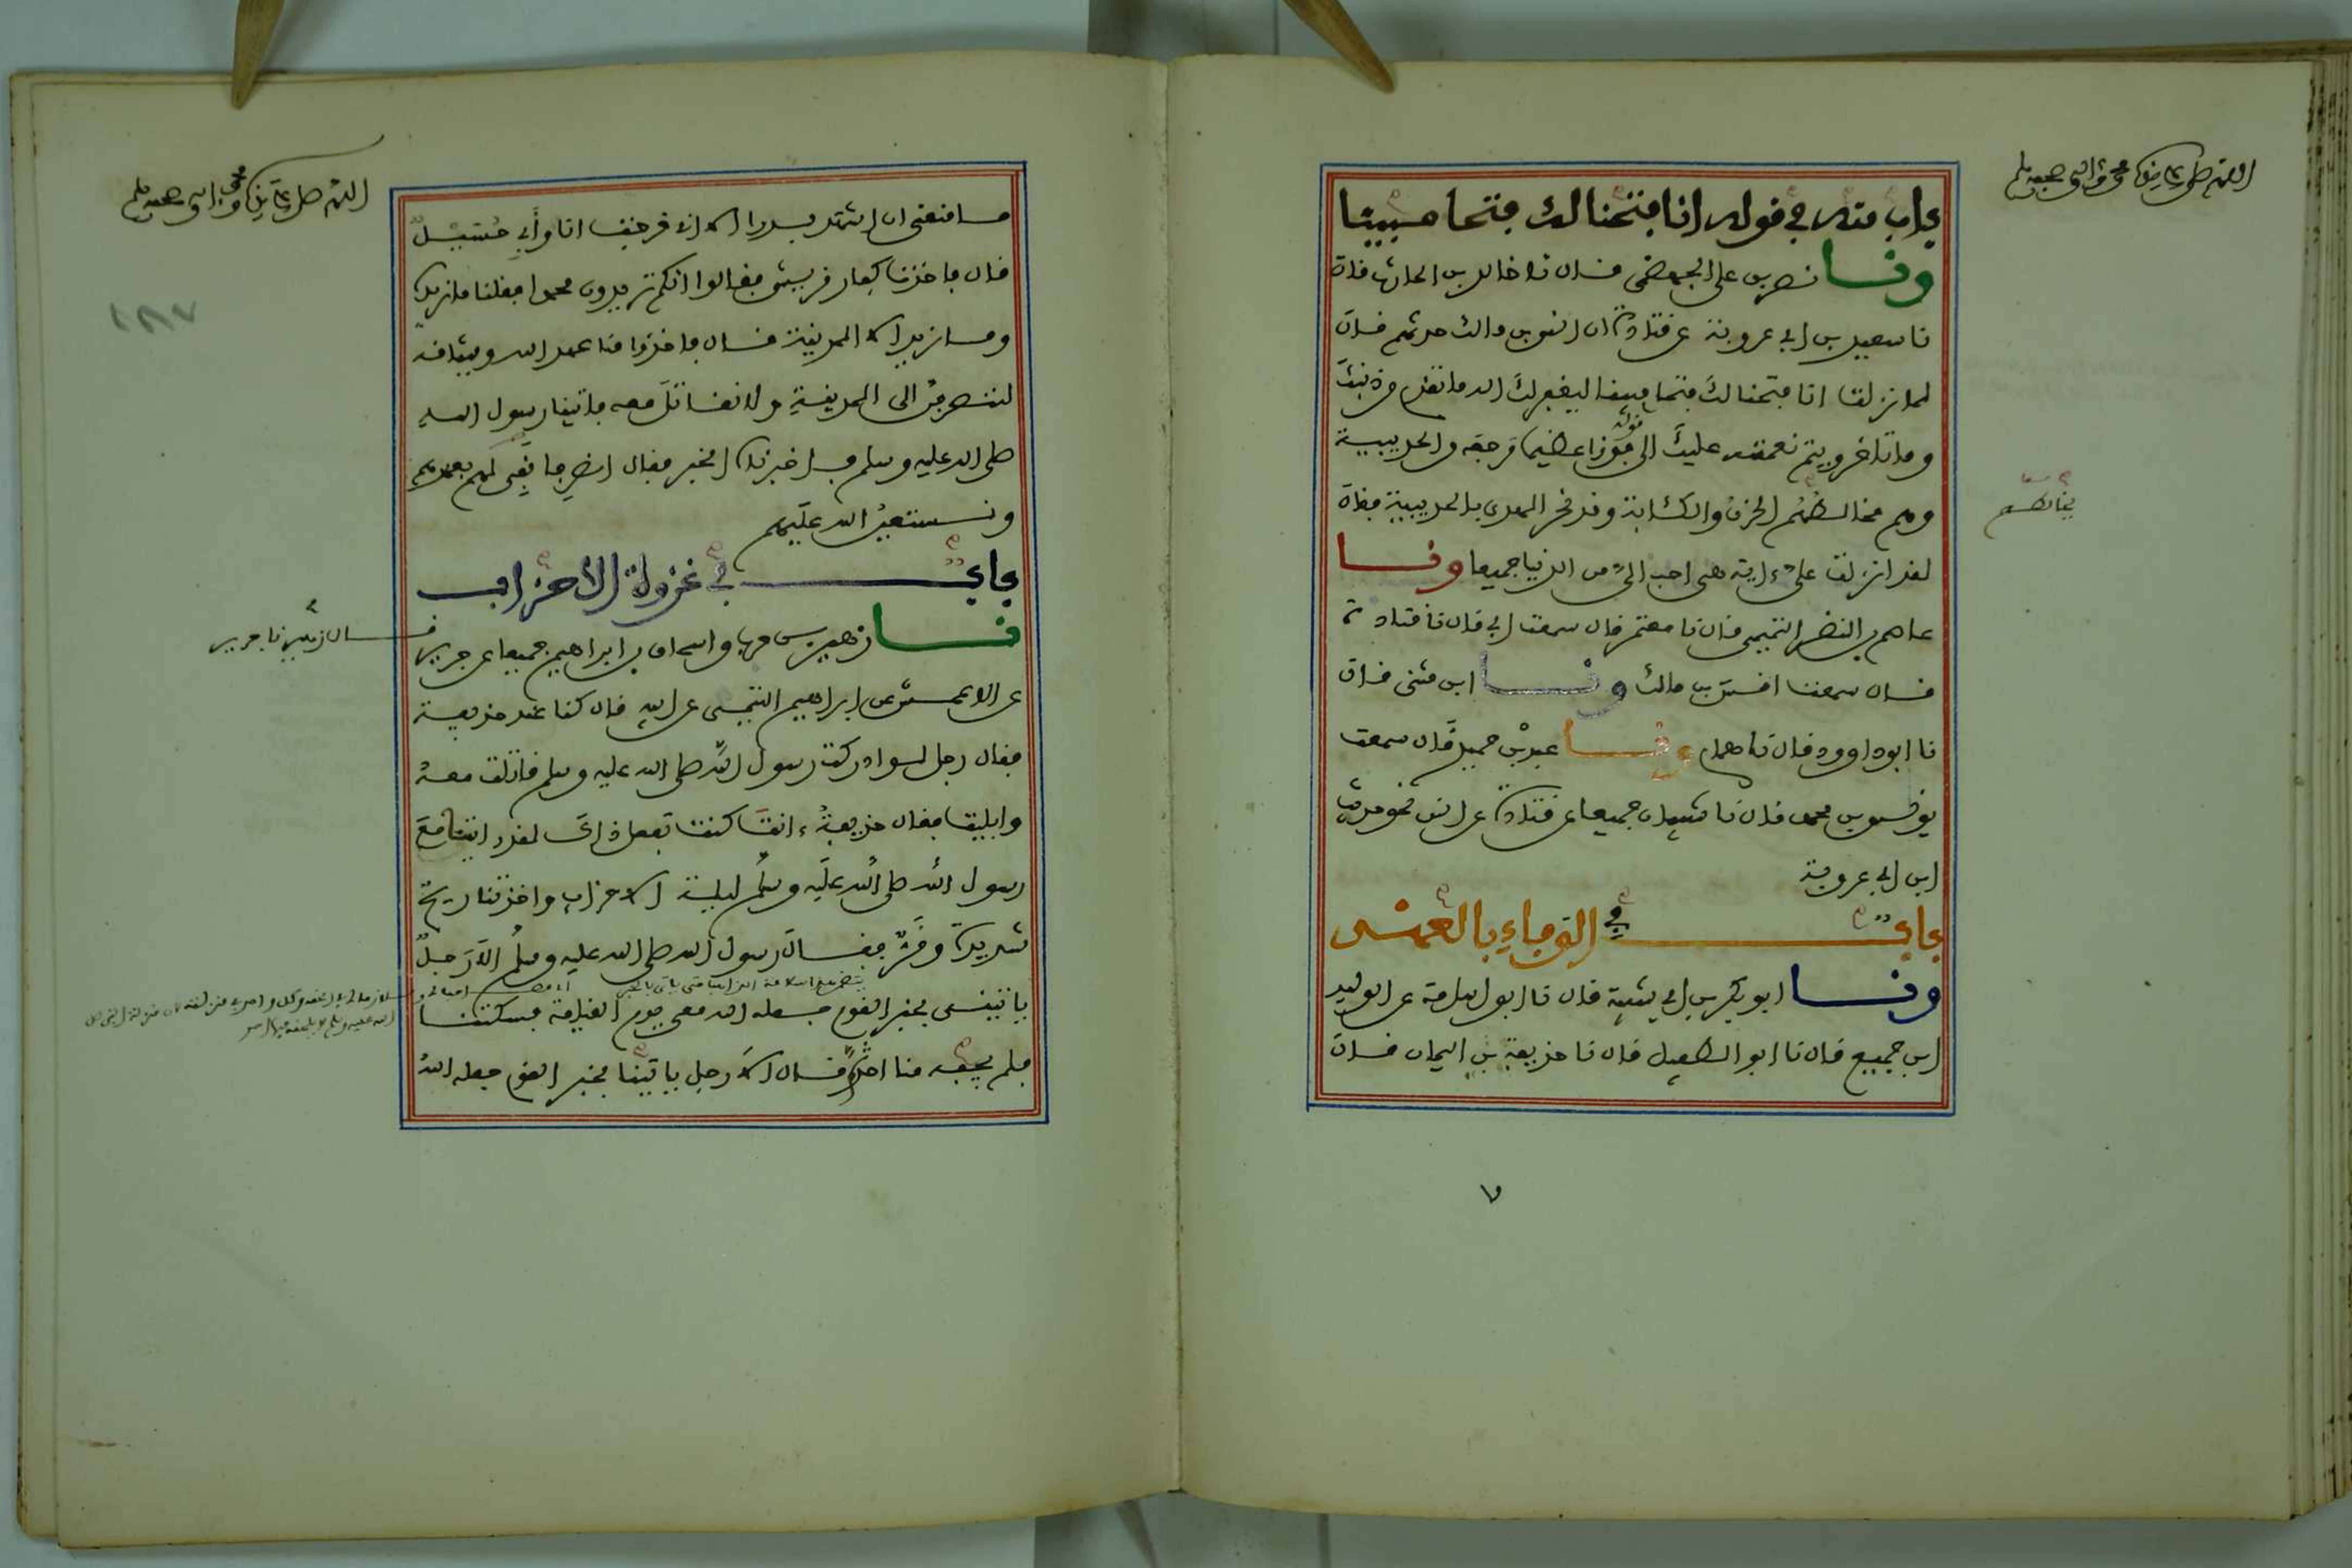 اللهم صل على سيدنا محمد وآله وصحبه وسلم
باب منه في قوله انا فتحنا لك فتحا مبينا
ونا نصر بن علي الجهضمي قال نا خالد بن الحارث قال
نا سعيد بن ابي عروبة عن قتادة ان انس بن مالك حدثهم قال
لما نزلت انا فتحنا لك فتحا مبينا ليغفر لك الله ما تقدم من ذنبك
وما تاخر ويتم نعمته عليك الى قوله فوزا عظيما مرجعه من الحديبية
وهم مخالطهم الحزن والكئابة وقد نحر الهدي بالحديبية فقال
يخالطهم
لقد انزلت علي ءاية هي احب الي من الدنيا جميعا ونا
عاصم بن النضر التيمي قال نا معتمر قال سمعت ابي قال نا قتادة
قال سمعت انس بن مالك ونا ابن مثنى قال
نا ابو داوود قال نا همام ونا عبد بن حميد قال سمعت
يونس بن محمد قال نا شيبان جميعا عن قتادة عن انس نحو حديث
ابن ابي عروبة
باب في الوفاء بالعهد
ونا ابو بكر بن ابي شيبة قال نا ابو اسامة عن الوليد
ابن جميع قال نا ابو الطفيل قال نا حذيفة بن اليمان قال
٧
اللهم صل على سيدنا محمد وآله وصحبه وسلم
ما منعني ان اشهد بدرا الا اني خرجت انا وأبي حُسَيْلٌ
قال فاخذنا كفار قريش فقالوا انكم تريدون محمدا فقلنا ما نريده
١٨٧
وما نريد الا المدينة قال فاخذوا منا عهد الله وميثاقه
لننصرفن الى المدينة ولا نقاتل معه فاتينا رسول الله
صلى الله عليه وسلم فاخبرناه الخبر فقال انصرفا نفي لهم بعهدهم
ونستعين الله عليهم
باب في غزوة الأحزاب
نا زهير بن حرب واسحاق بن ابراهيم جميعا عن جرير
قال زهير نا جرير
عن الاعمش عن ابراهيم التيمي عن ابيه قال كنا عند حذيفة
فقال رجل لو ادركت رسول الله صلى الله عليه وسلم قاتلت معه
وابليت فقال حذيفة ءانت كنت تفعل ذاك لقد رايتنا مع
رسول الله صلى الله عليه وسلم ليلة الاحزاب واخذتنا ريح
شديدة وقر فقال رسول الله صلى الله عليه وسلم الا رجل
ياتيني بخبر القوم جعله الله معي يوم القيامة فسكتنا
فلم يجبه منا احد ثم قال الا رجل ياتينا بخبر القوم جعله الله